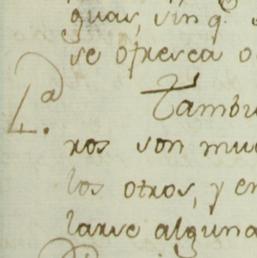 guas, sin q.e
se ofresca o
L.a Tambie
ros son mu
los otros, y en
larse alguna